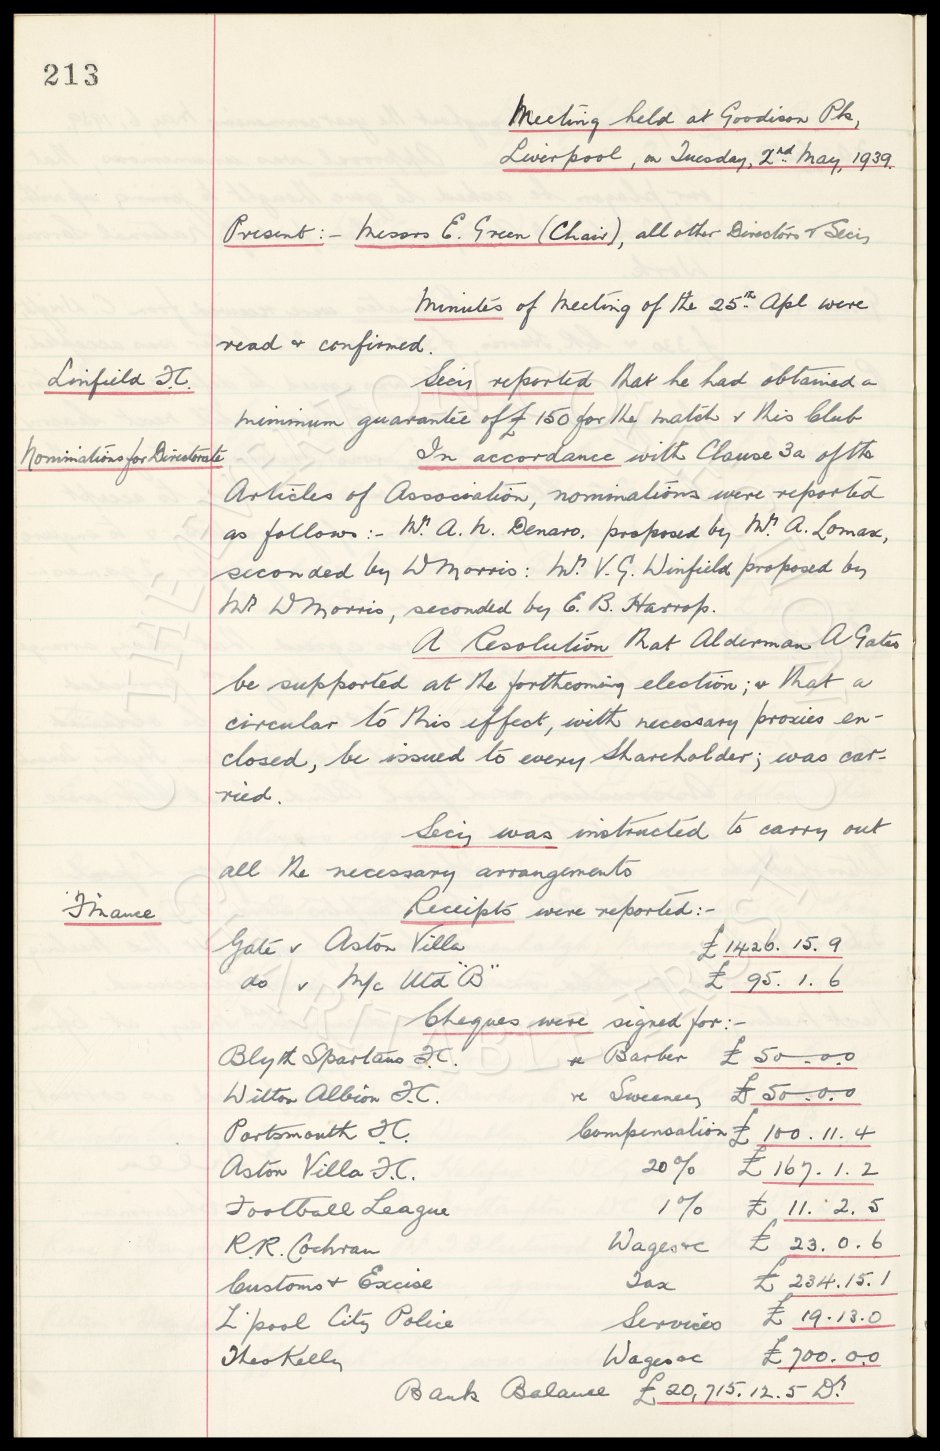 213
Meeting held at Goodison Pk,
Liverpool, on Tuesday, 2nd May, 1939.
Present:- Messrs E. Green (Chair), all other Directors & Secy
Minutes of Meeting of the 25th Apl were
read & confirmed.
Linfield F.C.
Secy reported that he had obtained a
minimum guarantee of £150 for the match v this Club
Nominations for Directorate
In accordance with Clause 3a of the
Articles of Association, nominations were reported
as follows:- Mr. A. N. Denaro, proposed by Mr. A. Lomax,
seconded by W Morris: Mr. V. G. Winfield proposed by
Mr W Morris, seconded by E. B. Harrop.
A Resolution that Alderman A Gates
be supported at the forthcoming election; & that a
circular to this effect, with necessary proxies en-
closed, be issued to every Shareholder; was car-
ried.
Secy was instructed to carry out
all the necessary arrangements
Finance
Receipts were reported:-
Gate v Aston Villa £1426. 15. 9
do v M/c Utd "B" £ 95. 1. 6
Cheques were signed for:-
Blyth Spartans F.C. re Barber £ 50.0.0
Witton Albion F.C. re Sweeney £ 50.0.0
Portsmouth F.C. Compensation £ 100. 11. 4
Aston Villa F.C. 20% £ 167. 1. 2
Football League 1% £ 11. 2. 5
R.R. Cochran Wages &c £ 23. 0. 6
Customs & Excise Tax £ 234. 15. 1
L'pool City Police Services £ 19. 13. 0
Theo Kelly Wages &c £ 700. 0. 0
Bank Balance £20,715. 12. 5 Dr.